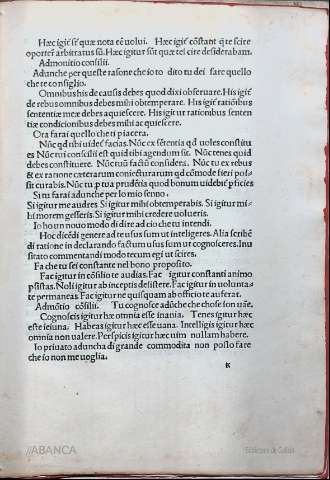 Hæc igit̃ sũt quæ nota eẽ uolui. Hæc igit̃ cõstant q̃ te scire
oportet arbitratus sũ. Hæc igit̃ sũt quæ tei cire desiderabam.
Admonitio consilii.
Adunche per queste rasone che io to dito tu dei fare quello
che te consiglio.
Omnibus his de causis debes quod dixi obseruare. His igit̃
de rebus omnibus debes mihi obtemperare. His igit̃ ratiõibus
sententiæ meæ debes aquiescere. His igitur rationibus senten
tiæ condicionibus debes mihi ac quiescere.
Ora farai quello che ti piacera.
Nũc qd tibi uidet̃ facias. Nũc ex sẽtentia qd uoles constitu
es Nũc tui consilii est quid tibi agendum sit. Nũc tenes quid
debes constituere. Nũc tuũ factũ consideri. Nũc tu ex rebus
& ex ratione cæterarum coniecturarum qd cõmode fieri pos
sit curabis. Nũc tu p tua prudẽtia quod bonum uidebit̃ pficies
Si tu farai adunche per lo mio senno.
Si igitur me audres Si igitur mihi obtemperabis. Si igitur mi
bi morem gesseris. Si igitur mihi credere uolueris.
Io ho un nouo modo di dire ad cio che tu intendi.
Hoc dicẽdi genere ad re usus sum ut intelligeres. Alia scribẽ
di ratione in declarando factum usus sum ut cognosceres. Inu
sitato commentandi modo tecum egi ut scires.
Fa che tu sei constante nel bono proposito.
Fac igitur in cõsilio te audias. Fac igitur constanti animo
psistas. Noli igitur ab inceptis desistere. Fac igitur in uolunta
te permaneas Fac igitur ne quisquam ab officio te auferat.
Admõtio cõsilii. Tu cognosce adũche che chose son uãe.
Cognosceis igitur hæc omnia esse inania. Tenes igitur hæc
este ieiuna. Habeas igitur hæc esse uana. Intelligis igitur hæc
omnia non ualere. Perspicis igitur hæc uim nullam habere.
Io priuato aduncha di grande commodita non posso fare
che io non me uoglia.
K
//ABANCA
Biblioteca de Galicia